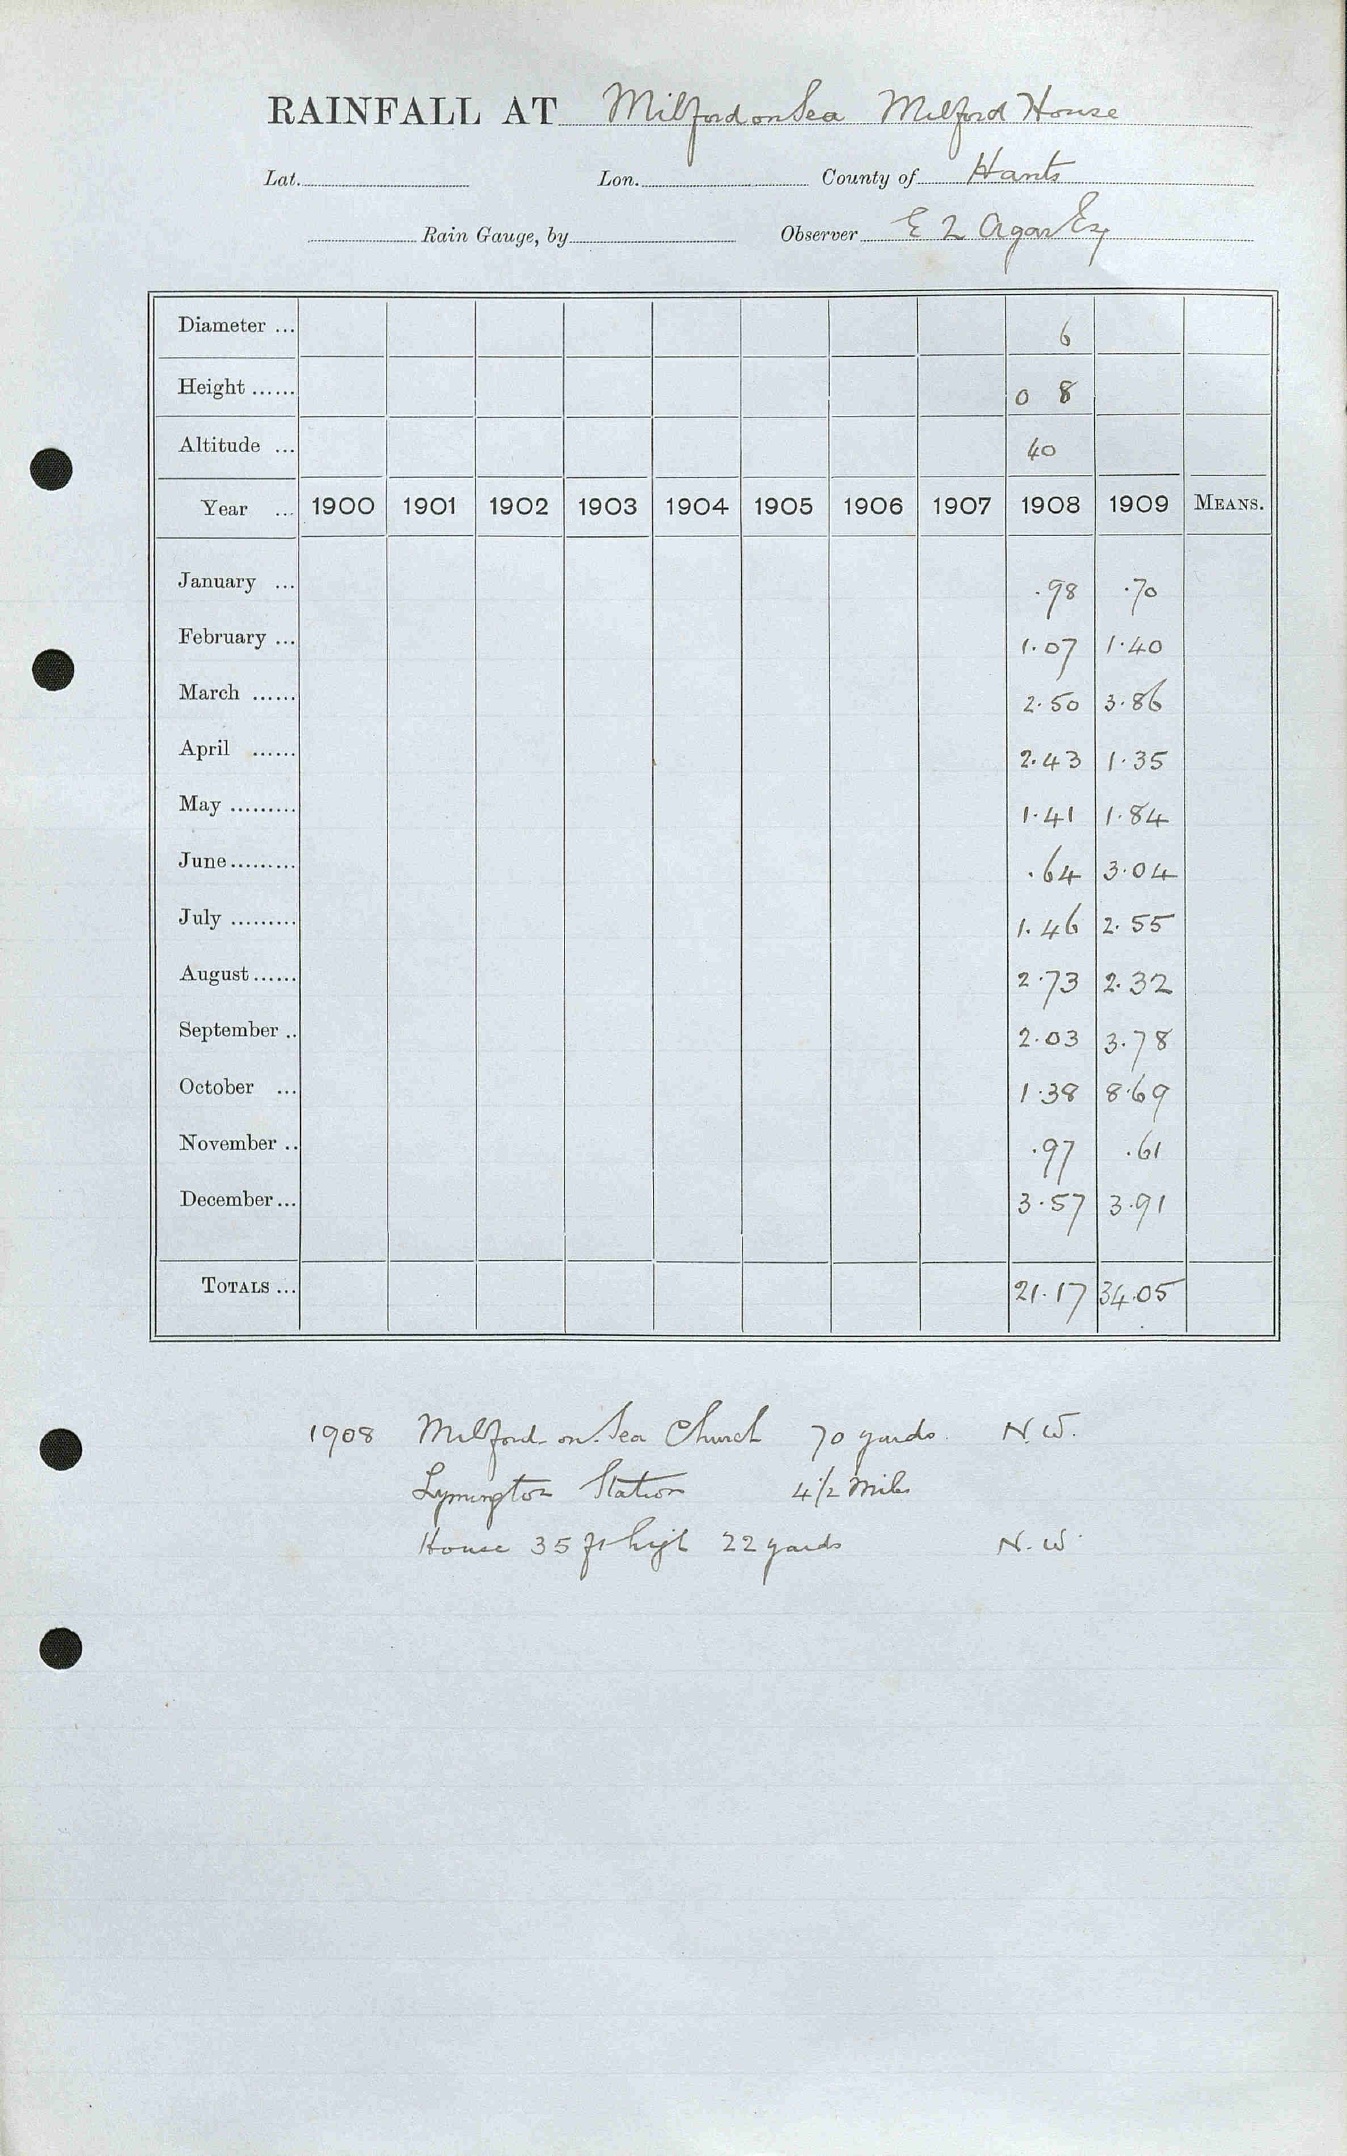 RAINFALL AT Milford on Sea Milford House
Lat. Lon. County of Hants
Rain Gauge, by Observer E L Agar Esq
Diameter ... 6
Height ...... 0 8
Altitude ... 40
Year ... 1900 1901 1902 1903 1904 1905 1906 1907 1908 1909 MEANS.
January ... .98 .70
February ... 1.07 1.40
March ...... 2.50 3.86
April ...... 2.43 1.35
May ......... 1.41 1.84
June ......... .64 3.04
July ......... 1.46 2.55
August ...... 2.73 2.32
September .. 2.03 3.78
October ... 1.38 8.69
November .. .97 .61
December ... 3.57 3.91
TOTALS ... 21.17 34.05
1908 Milford on Sea Church 70 yards N.W.
Lymington Station 4 1/2 miles
House 35 ft high 22 yards N.W.